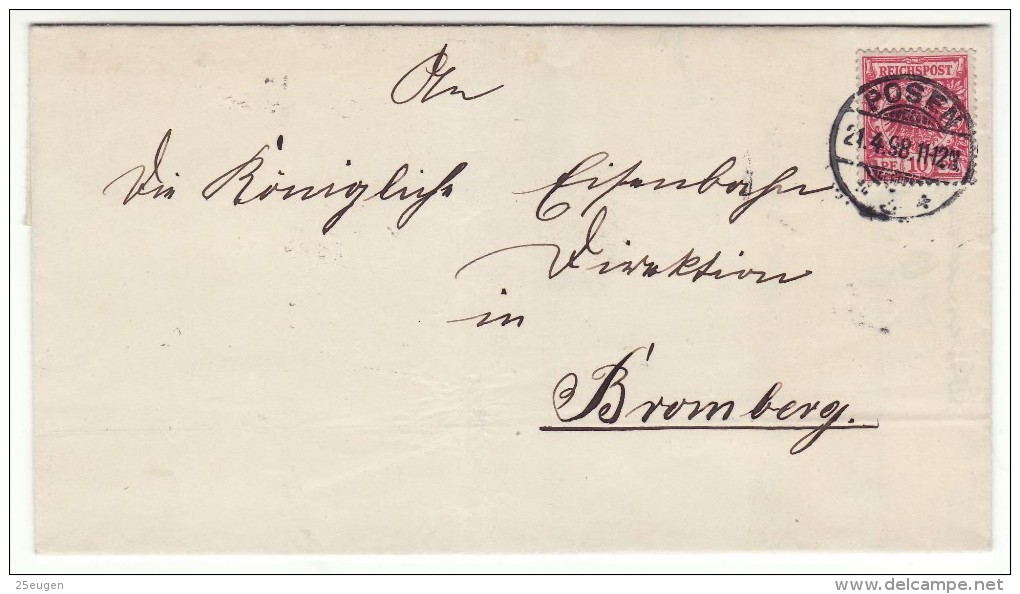 An
die Königliche Eisenbahn
Direktion
in
Bromberg.
REICHSPOST
PF 10
POSEN
21.4.98.11-12V.
25eugen
delcampe.net